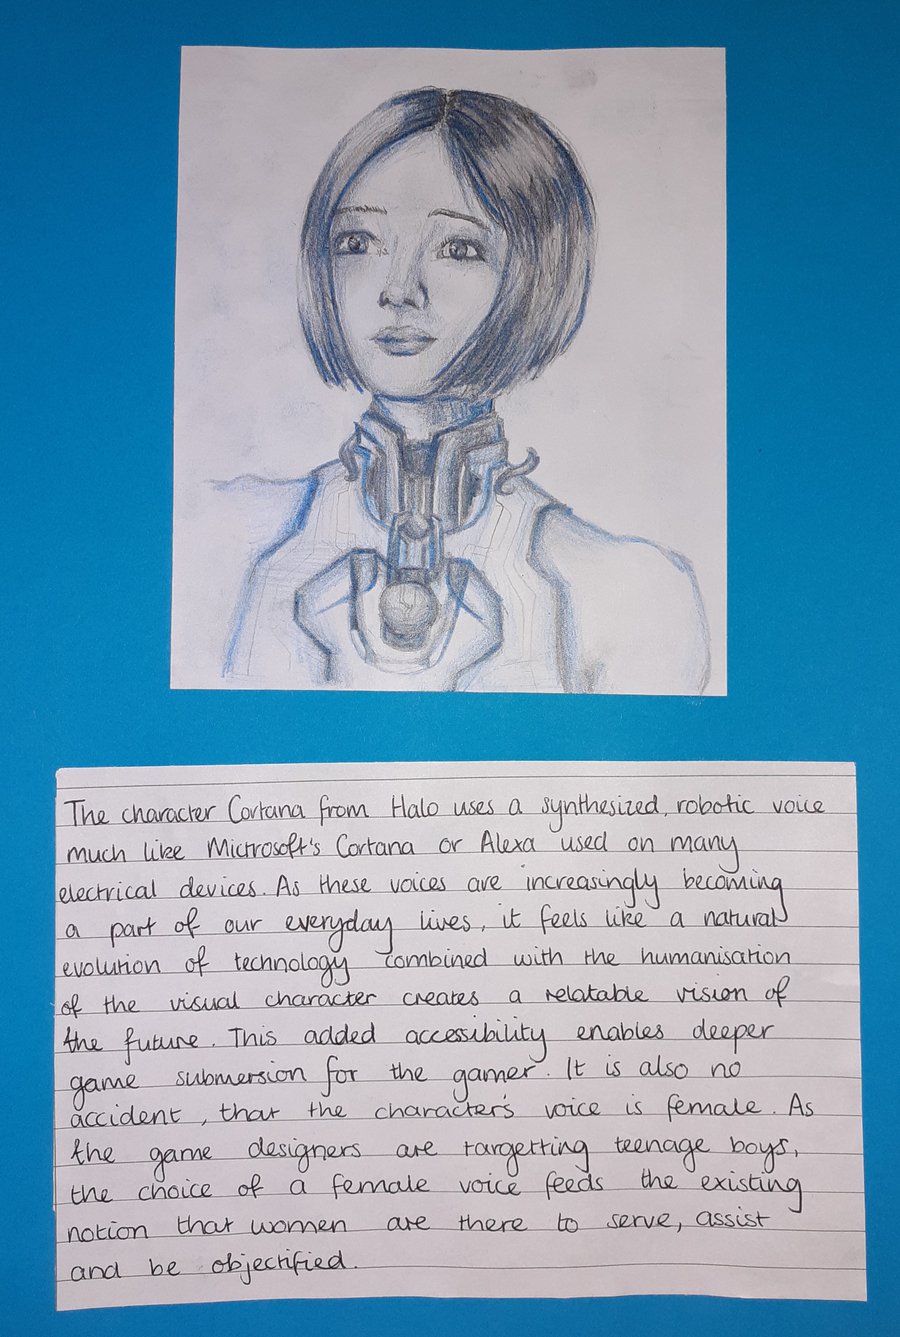 The character Cortana from Halo uses a synthesized, robotic voice
much like Microsoft's Cortana or Alexa used on many
electrical devices. As these voices are increasingly becoming
a part of our everyday lives, it feels like a natural
evolution of technology combined with the humanisation
of the visual character creates a relatable vision of
the future. This added accessibility enables deeper
game submersion for the gamer. It is also no
accident, that the character's voice is female. As
the game designers are targetting teenage boys,
the choice of a female voice feeds the existing
notion that women are there to serve, assist
and be objectified.